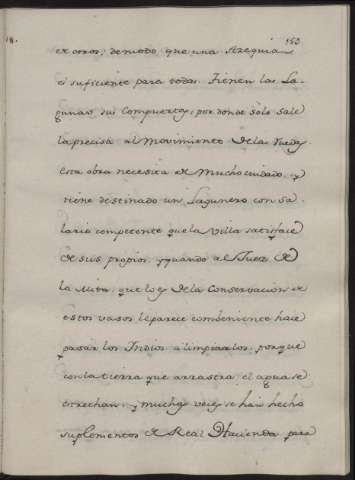 18. 153
otros; demodo, que una Azequia
es suficiente para todas. Tienen las La-
gunas sus Compuertas, por donde solo sale
la precisa al Movimiento de las Ruedas.
Esta obra necesita de Mucho cuidado, y
tiene destinado un Lagunero con Sa-
lario competente que la Villa satisface
de sus propios, y quando al Juez de
la Mita, que lo es de la Conservacion de
estos vasos le parece combeniente hace
pasar los Indios a limpiarlos, porque
con la tierra que arrastra el agua se
estrechan, y muchas veces se han hecho
suplementos de Real Hacienda para